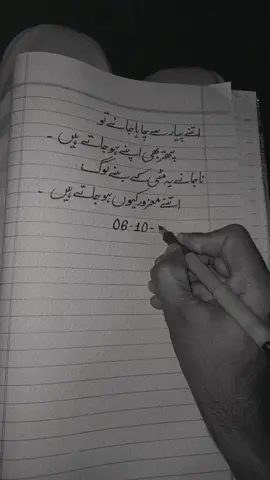 اتنے پیار سے چاہا جائے تو
پتھر بھی اپنے ہو جاتے ہیں ۔
نا جانے یہ مٹی کے بنے لوگ
اتنے مغرور کیوں ہو جاتے ہیں ۔
06-10-